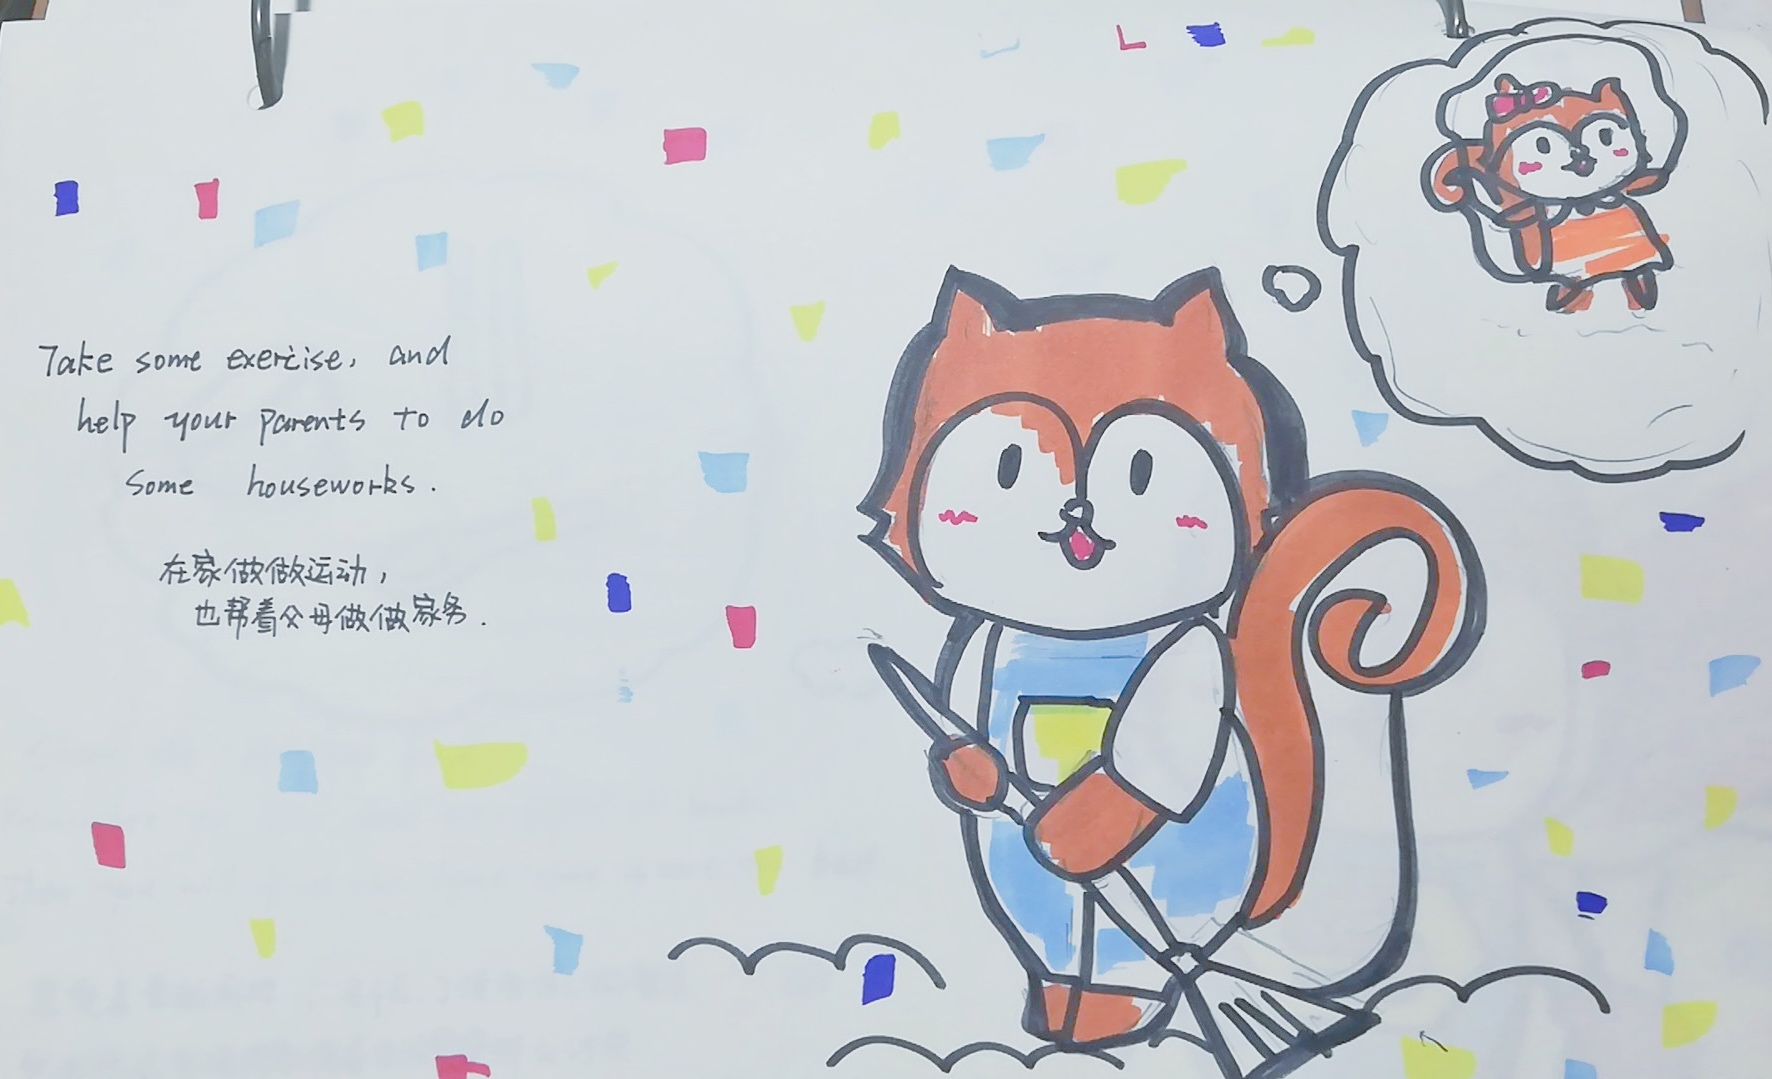 Take some exercise, and
help your parents to do
some houseworks.
在家做做运动，
也帮着父母做做家务.